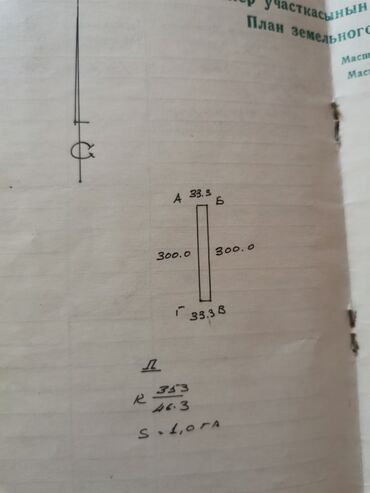 участкасынын
План земельного
Масш
Мас
С
А 33.3 Б
300.0 300.0
Г 33.3 В
Л
К 353
46.3
S = 1,0 га